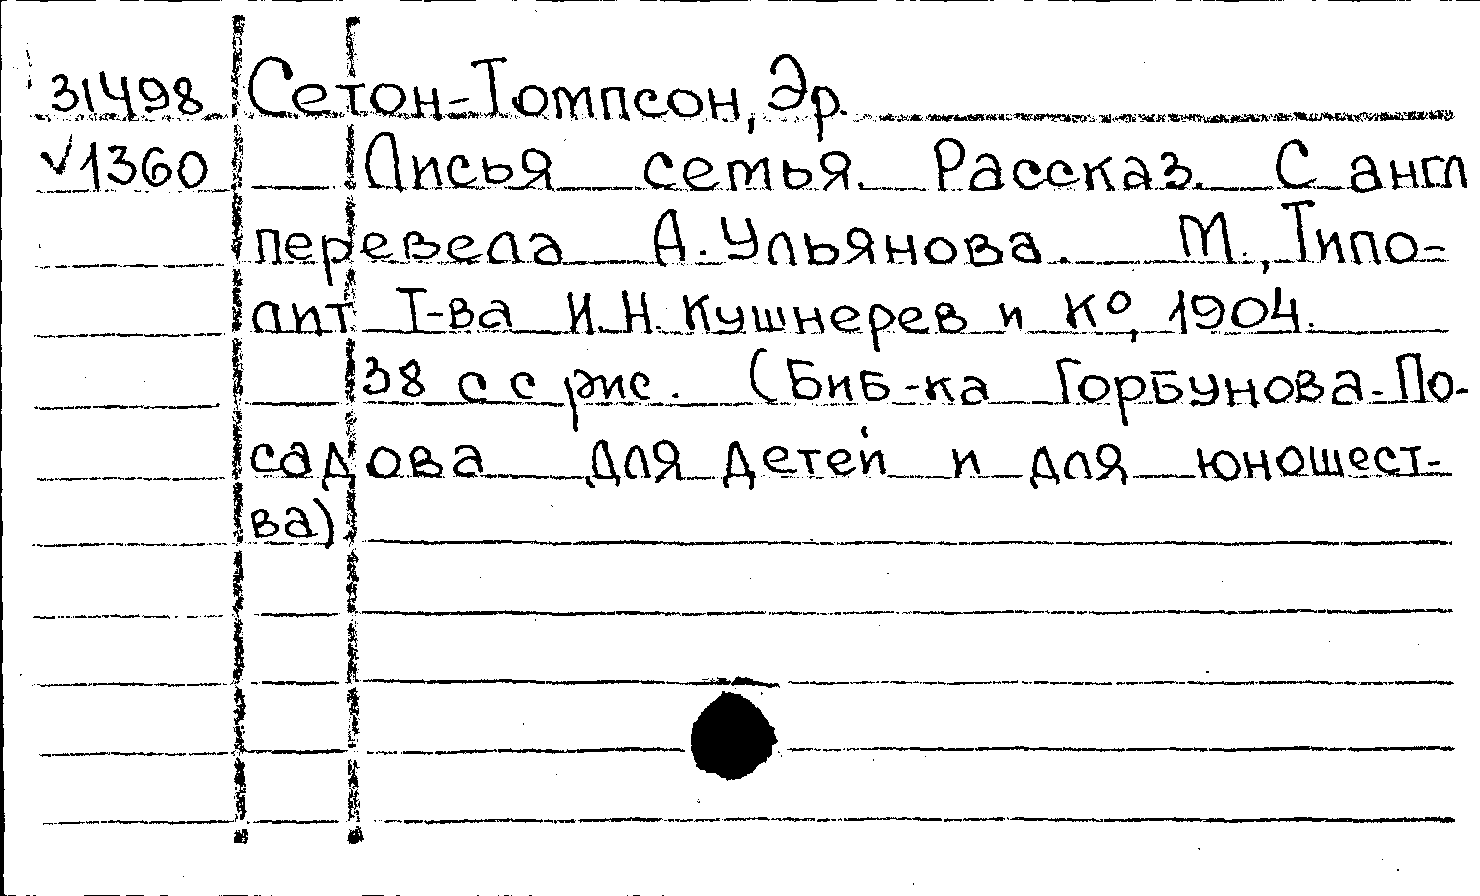 31498 Сетон-Томпсон, Эр.
√1360 Лисья семья. Рассказ. С англ
перевела А. Ульянова. М., Типо-
лит Т-ва И.Н. Кушнерев и Кº, 1904.
38 с с рис. (Биб-ка Горбунова-По-
садова для детей и для юношест-
ва)